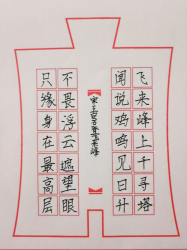 飞来峰上千寻塔
闻说鸡鸣见日升
【宋王安石登飞来峰】
不畏浮云遮望眼
只缘身在最高层